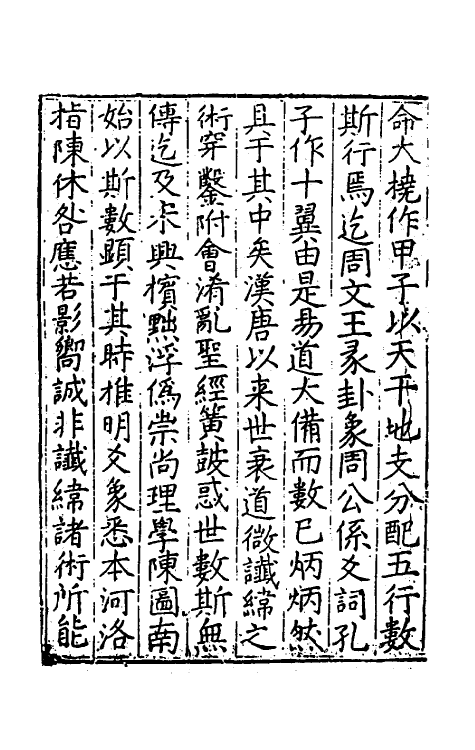 命大橈作甲子以天干地支分配五行數
斯行焉迄周文王彖卦象周公係爻詞孔
子作十翼由是易道大備而數已炳炳然
具于其中矣漢唐以来世衰道微讖緯之
術穿鑿附會淆亂聖經簧皷惑世數斯無
傳迄及宋興擯黜浮僞崇尚理學陳圖南
始以斯數顯于其時推明爻象悉本河洛
指陳休咎應若影嚮誠非讖緯諸術所能